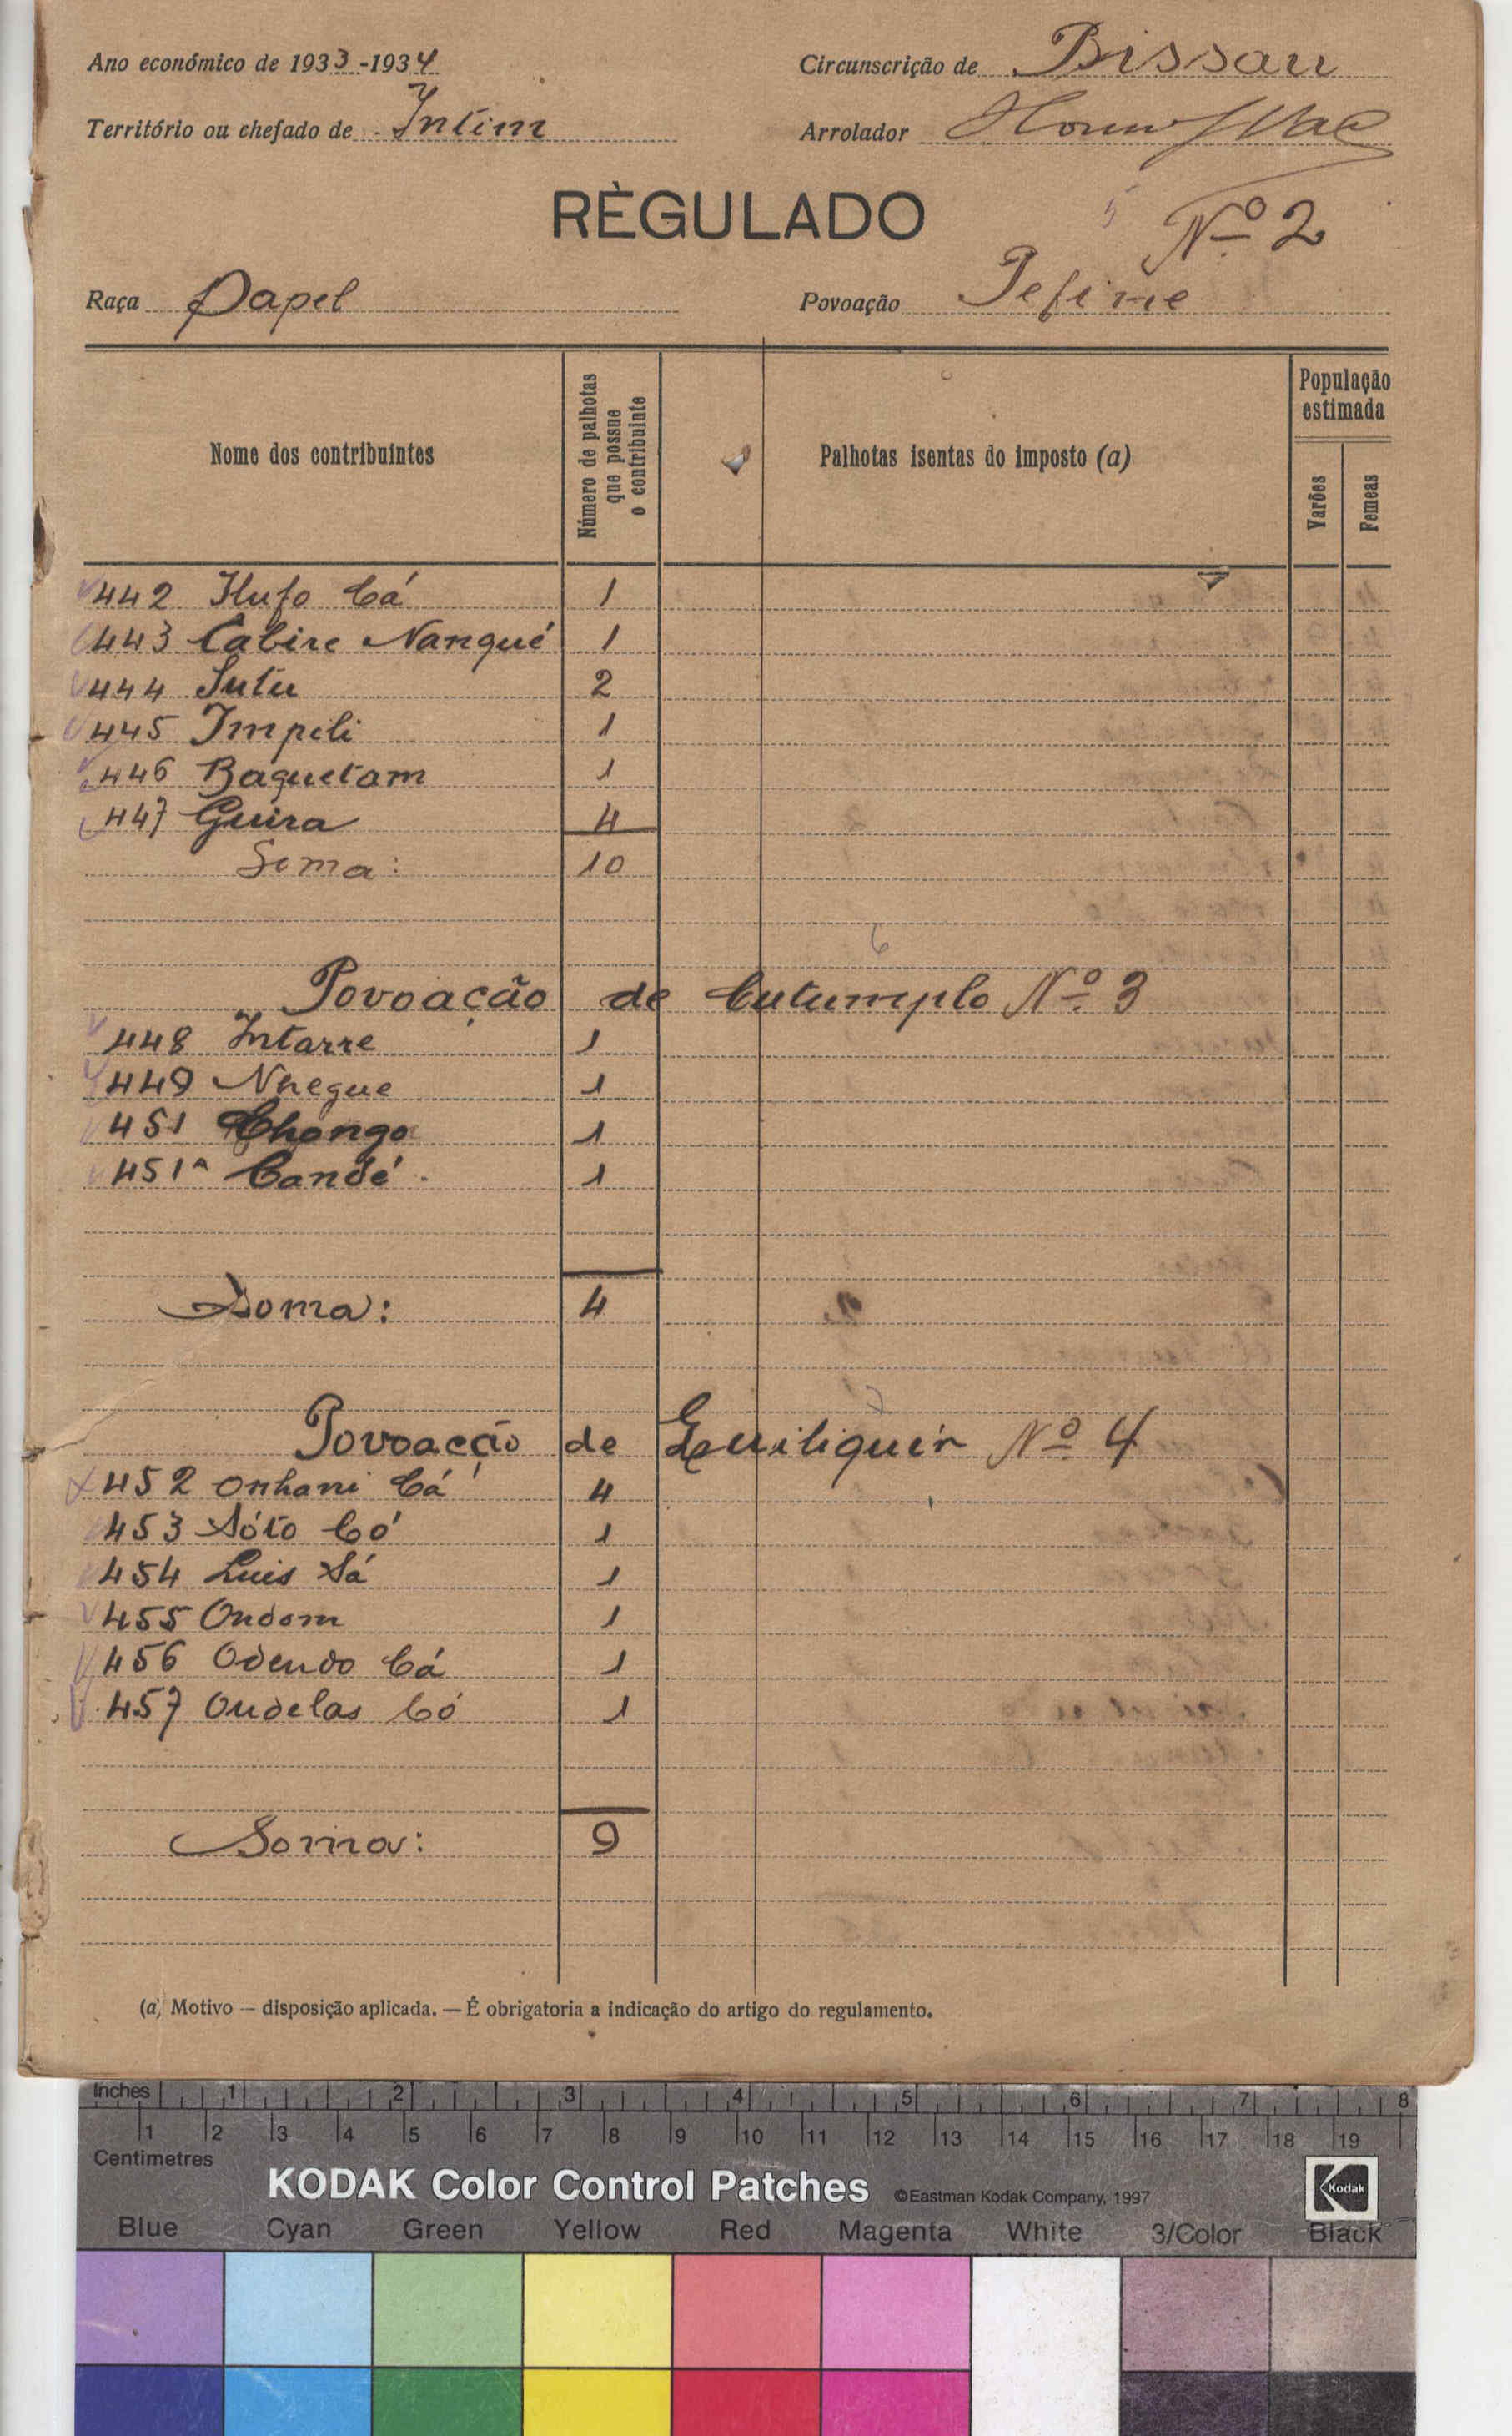 Ano económico de 1933-1934
Circunscrição de Bissau
Território ou chefado de Intim
Arrolador
RÈGULADO
Nº 2
Raça Papel
Povoação Pefine
Nome dos contribuintes
Número de palhotas que possue o contribuinte
Palhotas isentas do imposto (a)
População estimada
Varões
Femeas
442 Ilufo Cá 1
443 Cabire Nanqué 1
444 Sutu 2
445 Impili 1
446 Baquetam 1
447 Guira 4
Soma: 10
6
Povoação de Cutumplo Nº 3
448 Intarre 1
449 Nhegue 1
451 Chongo 1
451ª Candé 1
Soma: 4
7
Povoação de Quiliquir Nº 4
452 Onhani Cá 4
453 Sóto Có 1
454 Luis Sá 1
455 Ondom 1
456 Odendo Cá 1
457 Ondelas Có 1
Soma: 9
(a) Motivo — disposição aplicada. — É obrigatoria a indicação do artigo do regulamento.
Inches 1 2 3 4 5 6 7 8
1 2 3 4 5 6 7 8 9 10 11 12 13 14 15 16 17 18 19
Centimetres
KODAK Color Control Patches ©Eastman Kodak Company, 1997 Kodak
Blue Cyan Green Yellow Red Magenta White 3/Color Black